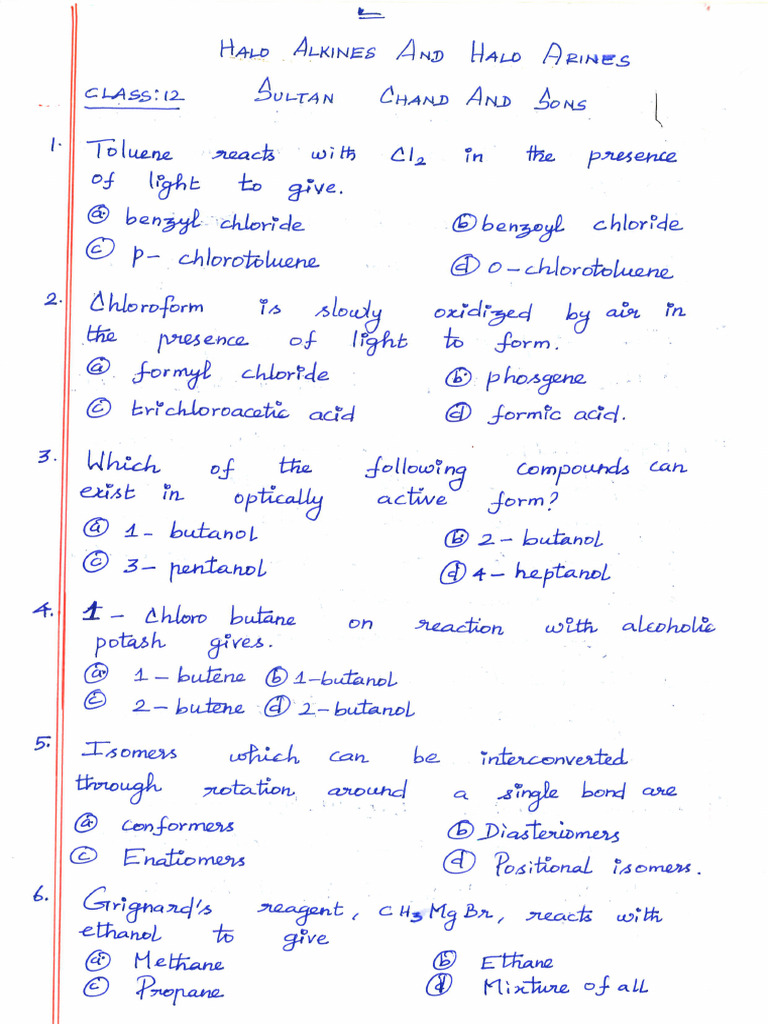 HALO ALKINES AND HALO ARINES
CLASS:12 SULTAN CHAND AND SONS
1. Toluene reacts with Cl2 in the presence
of light to give.
(a) benzyl chloride (b) benzoyl chloride
(c) p- chlorotoluene (d) o-chlorotoluene
2. Chloroform is slowly oxidized by air in
the presence of light to form.
(a) formyl chloride (b) phosgene
(c) trichloroacetic acid (d) formic acid.
3. Which of the following compounds can
exist in optically active form?
(a) 1- butanol (b) 2- butanol
(c) 3- pentanol (d) 4- heptanol
4. 1- Chloro butane on reaction with alcoholic
potash gives.
(a) 1- butene (b) 1-butanol
(c) 2- butene (d) 2-butanol
5. Isomers which can be interconverted
through rotation around a single bond are
(a) conformers (b) Diasteriomers
(c) Enatiomers (d) Positional isomers.
6. Grignard's reagent, CH3MgBr, reacts with
ethanol to give
(a) Methane (b) Ethane
(c) Propane (d) Mixture of all